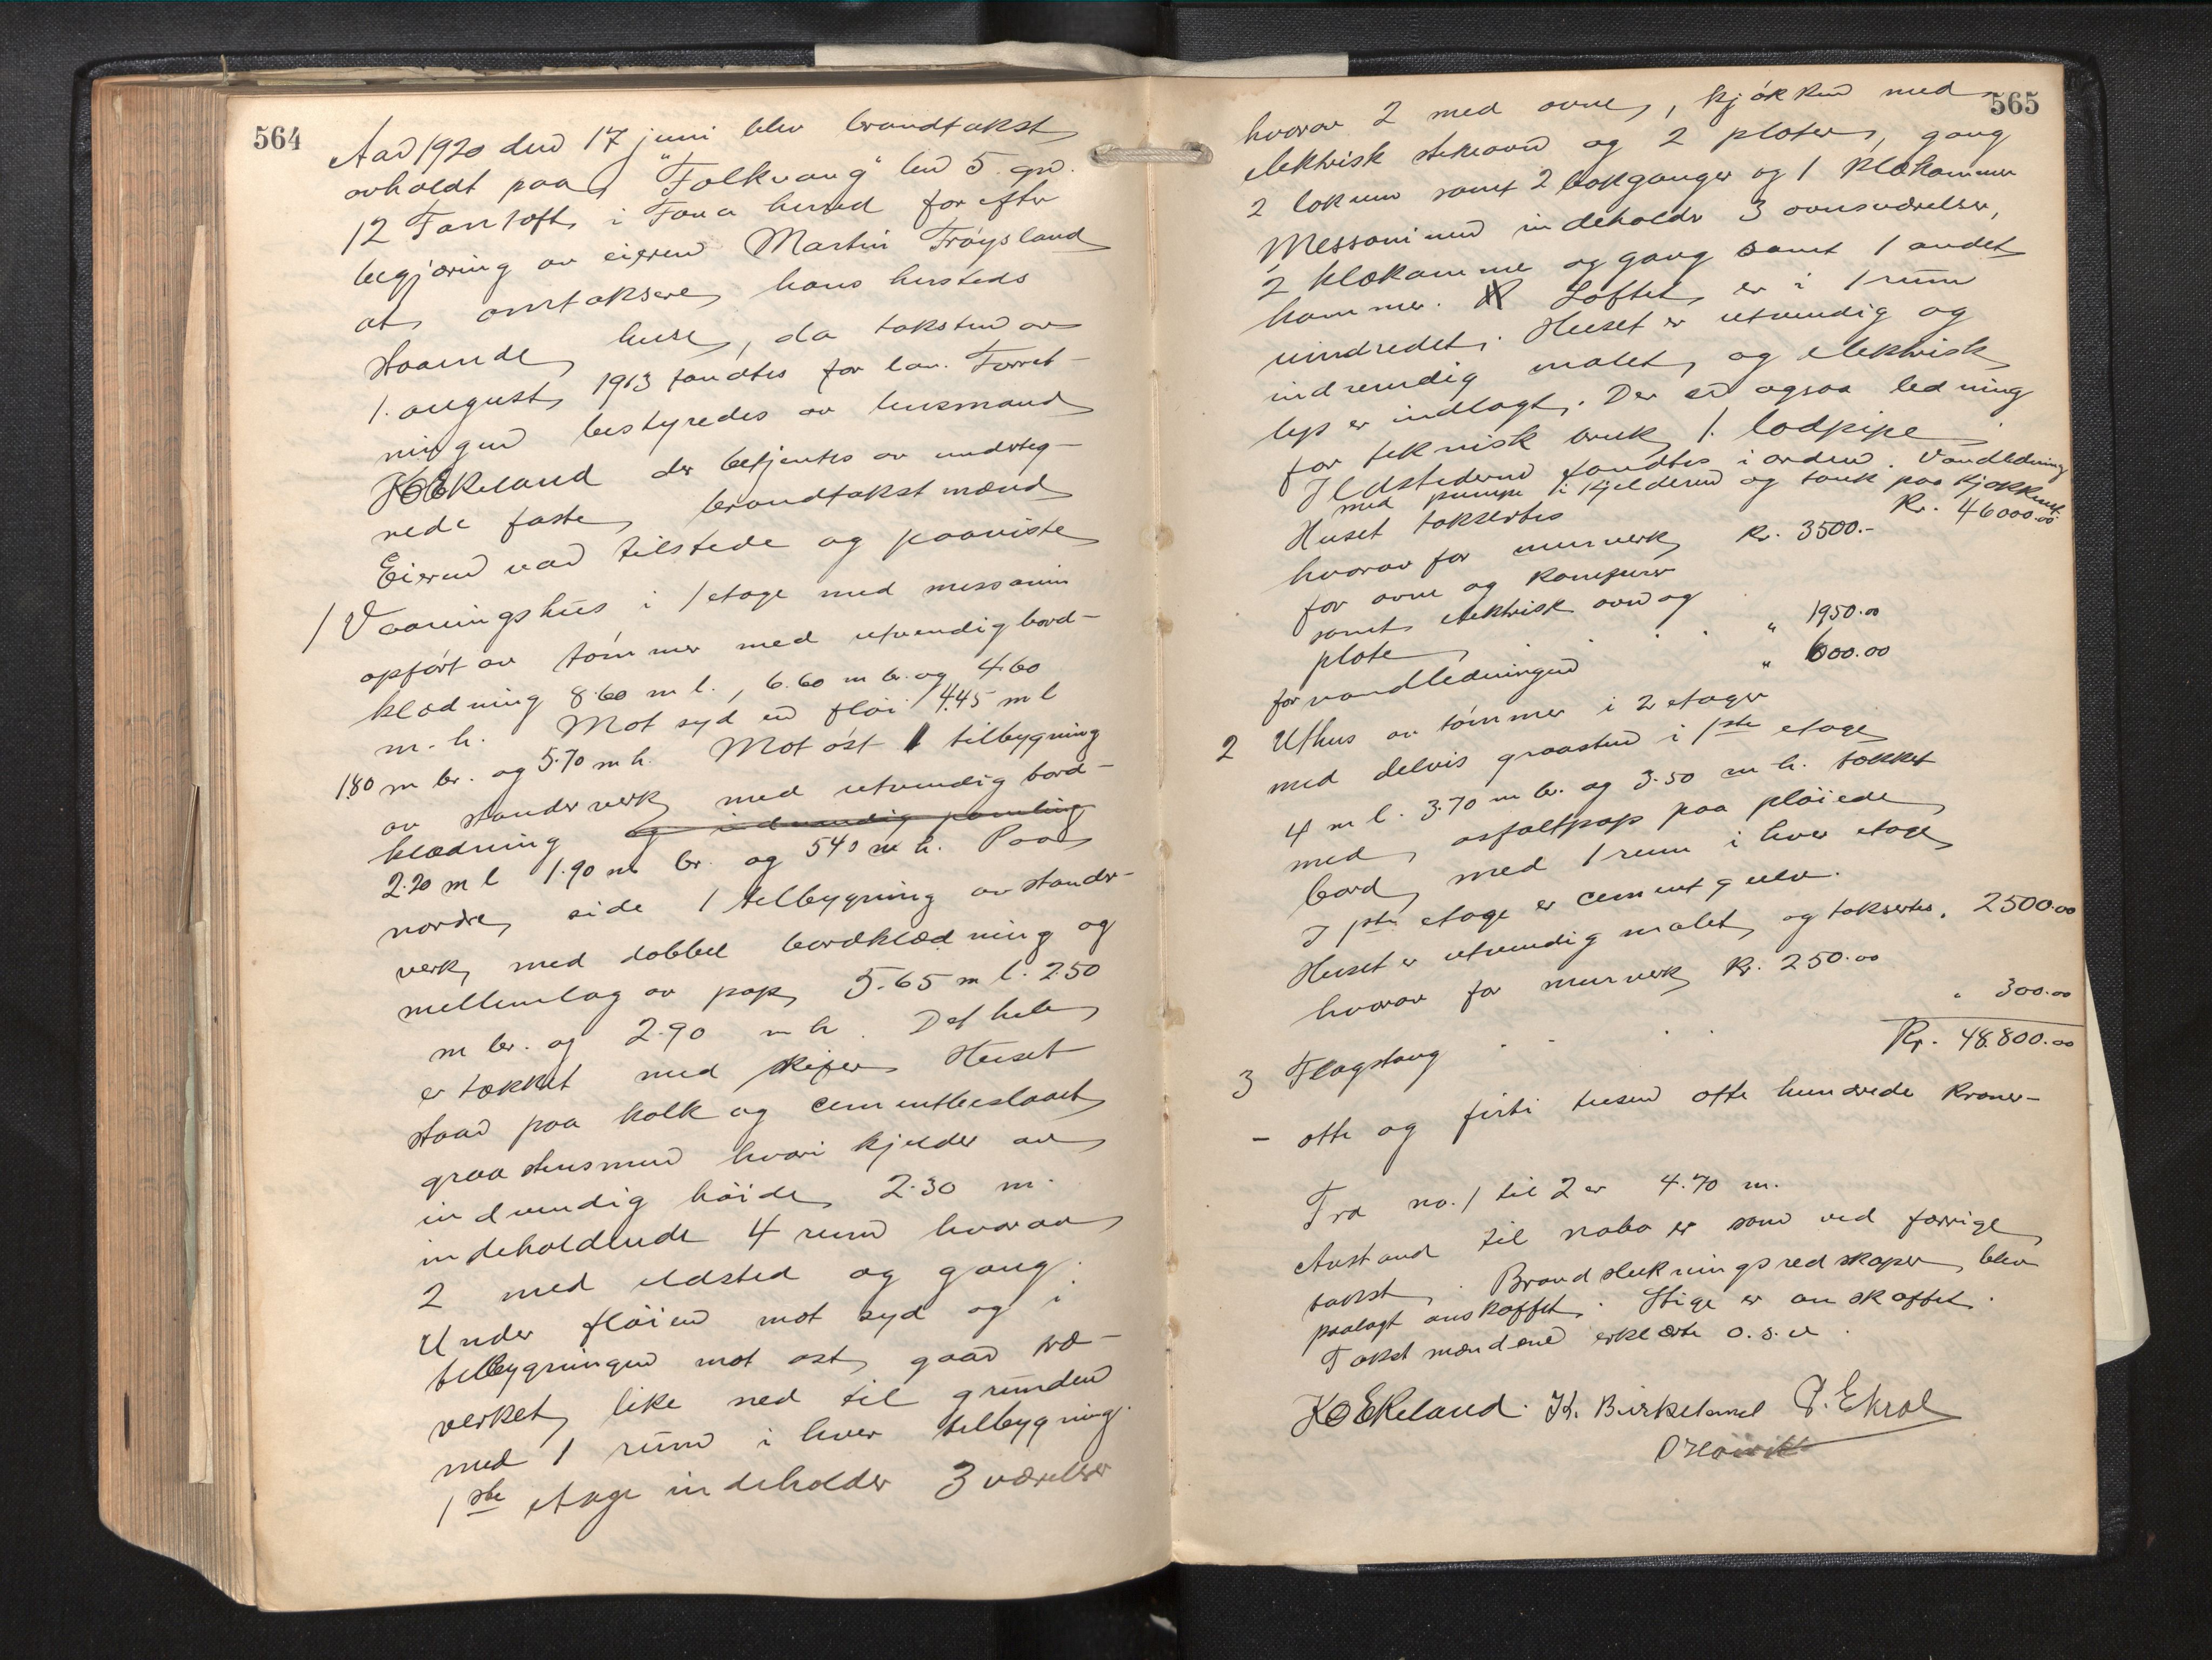 564
Aar 1920 den 17 juni blev brandtakst
avholdt paa "Folkvang" lnr 5. gnr.
12 Fantoft i Fana herred for efter
begjæring av eieren Martin Frøysland
at omtaksere hans hersteds
staaende huse, da taksten av
1. august 1913 fandtes for lav. Forret-
ningen bestyredes av lensmand
KOEkeland der betjentes av underteg-
nede faste brandtakstmænd
Eieren var tilstede og paaviste
1 Vaaningshus i 1 etage med messanin
opført av tømmer med utvendig bord-
klædning 8.60 m l., 6.60 m br. og 4.60
m. h. Mot syd en fløi 4.45 m l
1.80 m br. og 5.70 m h. Mot øst 1 tilbygning
av stenderverk med utvendig bord-
klædning og indvendig paneling
2.20 m l 1.90 m br. og 540 m h. Paa
nordre side 1 tilbygning av stender-
verk med dobbel bordklædning og
mellemlag av pap 5.65 m l. 2.50
m br. og 2.90 m h. Det hele
er tækket med skifer Huset
staar paa kalk og cementbeslaaet
graastensmur hvori kjelder av
indvendig høide 2.30 m.
indeholdende 4 rum hvorav
2 med ildsted og gang.
Under fløien mot syd og i
tilbygningen mot øst gaar træ-
verket like ned til grunden
med 1 rum i hver tilbygning.
1ste etage indeholder 3 værelser
565
hvorav 2 med ovne, kjøkken med
elektrisk stekeovn og 2 plater, gang
2 lokum samt 2 bakganger og 1 klækammer
Messaninen indeholder 3 ovnsværelser,
2 klækamme og gang samt 1 andet
kammer. Loftet er i 1 rum
uindredet. Huset er utvendig og
indvendig malet og elektrisk
lys er indlagt. Der er ogsaa ledning
for teknisk bruk 1. lodpipe
Ildstederne fandtes i orden. Vandledning
med pumpe i kjelderen og tank paa kjøkkenet.
Huset taksertes Kr. 46000.00
hvorav for murverk Kr. 3500.-
for ovne og komfurer
samt elektrisk ovn og
plate " 1950.00
for vandledningen " 600.00
2 Uthus av tømmer i 2 etager
med delvis graasten i 1ste etage
4 m l. 3.70 m br. og 3.50 m h. tækket
med asfaltpap paa pløiede
bord med 1 rum i hver etage
I 1ste etage er cementgulv.
Huset er utvendig malet og taksertes " 2500.00
hvorav for murverk Kr. 250.00
3 Flagstang " 300.00
Kr. 48.800.00
- otte og firti tusen otte hundrede kroner -
Fra no. 1 til 2 er 4.70 m.
Avstand til nabo er som ved forrige
takst. Brandslukningsredskaper blev
paalagt anskaffet. Stige er anskaffet.
Takstmændene erklærte o.s.v.
KOEkeland. K. Birkeland P. Ekrol
O Høivik